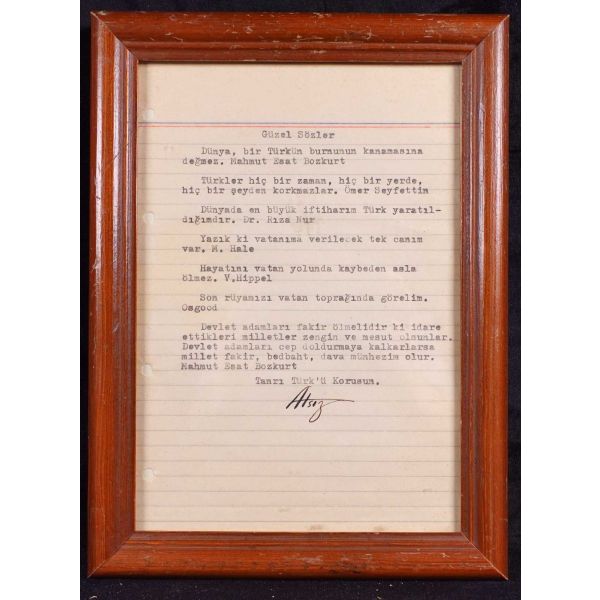 Güzel Sözler
Dünya, bir Türkün burnunun kanamasına
değmez. Mahmut Esat Bozkurt
Türkler hiç bir zaman, hiç bir yerde,
hiç bir şeyden korkmazlar. Ömer Seyfettin
Dünyada en büyük iftiharım Türk yaratıl-
dığımdır. Dr. Rıza Nur
Yazık ki vatanıma verilecek tek canım
var. M. Hale
Hayatını vatan yolunda kaybeden asla
ölmez. V.Hippel
Son rüyamızı vatan toprağında görelim.
Osgood
Devlet adamları fakir ölmelidir ki idare
ettikleri milletler zengin ve mesut olsunlar.
Devlet adamları cep doldurmaya kalkarlarsa
millet fakir, bedbaht, dava münhezim olur.
Mahmut Esat Bozkurt
Tanrı Türk'ü Korusun.
Atsız